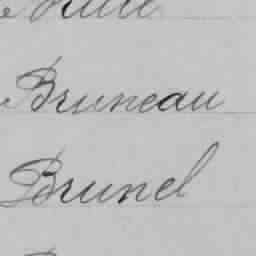 Bruneau
Brunel